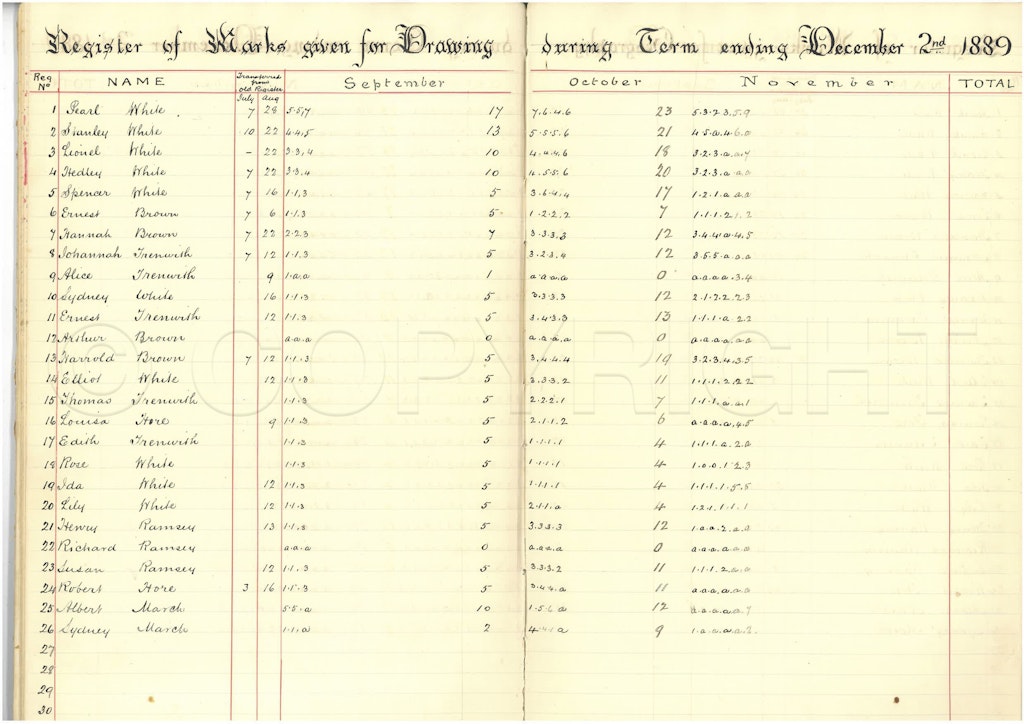 Register of Marks given for Drawing during Term ending December 2nd 1889
Reg No NAME Transferred from Old Register September October November TOTAL
July Aug
1 Pearl White 7 28 5.5.7 17 7.6.4.6 23 5.3.2.3.5.9
2 Stanley White 10 22 4.4.5 13 5.5.5.6 21 4.5.a.4.6.0
3 Lionel White - 22 3.3.4 10 4.4.4.6 18 3.2.3.a.a.7
4 Hedley White 7 22 3.3.4 10 4.5.5.6 20 3.2.3.a.a.a
5 Spencer White 7 16 1.1.3 5 3.6.4.4 17 1.2.1.a.a.a
6 Ernest Brown 7 6 1.1.3 5 1.2.2.2 7 1.1.1.2.1.2
7 Hannah Brown 7 22 2.2.3 7 3.3.3.3 12 3.4.4.a.4.5
8 Johannah Trenwith 7 12 1.1.3 5 3.2.3.4 12 3.5.5.a.a.a
9 Alice Trenwith 9 1.a.a 1 a.a.a.a 0 a.a.a.a.3.4
10 Sydney White 16 1.1.3 5 3.3.3.3 12 2.1.7.2.2.3
11 Ernest Trenwith 12 1.1.3 5 3.4.3.3 13 1.1.1.a.2.2
12 Arthur Brown a.a.a 0 a.a.a.a 0 a.a.a.a.a.a
13 Harrold Brown 7 12 1.1.3 5 3.4.4.4 19 3.2.3.4.3.5
14 Elliot White 12 1.1.3 5 3.3.3.2 11 1.1.1.2.2.2
15 Thomas Trenwith 1.1.3 5 2.2.2.1 7 1.1.1.a.a.1
16 Louisa Hore 9 1.1.3 5 2.1.1.2 6 a.a.a.a.4.5
17 Edith Trenwith 1.1.3 5 1.1.1.1 4 1.1.1.a.2.a
18 Rose White 1.1.3 5 1.1.1.1 4 1.0.0.1.2.3
19 Ida White 12 1.1.3 5 1.1.1.1 4 1.1.1.1.5.5
20 Lily White 12 1.1.3 5 2.1.1.a 4 1.2.1.1.1.1
21 Henry Ramsey 13 1.1.3 5 3.3.3.3 12 1.a.a.2.a.a
22 Richard Ramsey a.a.a 0 a.a.a.a 0 a.a.a.a.a.a
23 Susan Ramsey 12 1.1.3 5 3.3.3.2 11 1.1.1.2.a.a
24 Robert Hore 3 16 1.1.3 5 3.4.4.a 11 a.a.a.a.a.a
25 Albert March 5.5.a 10 1.5.6.a 12 a.a.a.a.a.7
26 Sydney March 1.1.a 2 4.4.1.a 9 1.a.a.a.a.2
27
28
29
30
© COPYRIGHT